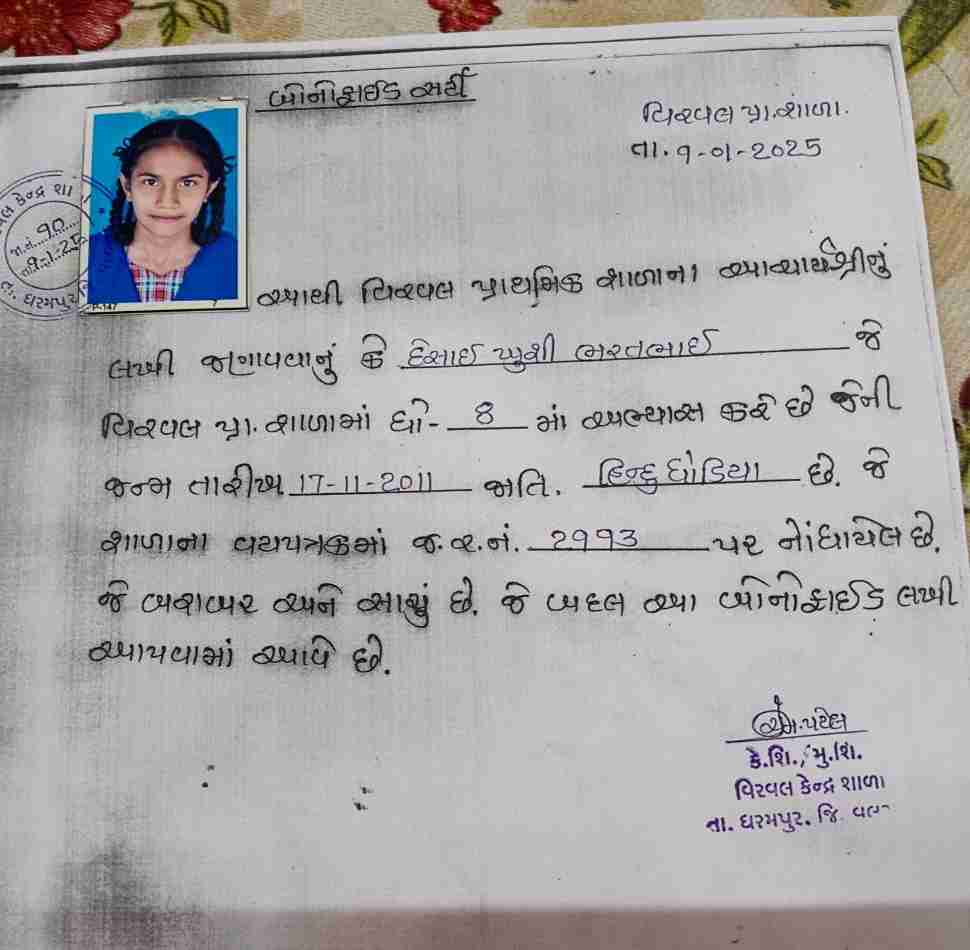 બોનોફાઈડ સર્ટી
વિરવલ પ્રા.શાળા.
તા. ૧-૦૧-2025
વલ કેન્દ્ર શા
જા.નં. ૧૦
તા. ૧-૧-25
તા. ધરમપુર
આથી વિરવલ પ્રાથમિક શાળાના આચાર્યશ્રીનું
લખી જણાવવાનું કે દેસાઈ ખુશી ભરતભાઈ જે
વિરવલ પ્રા. શાળામાં ધો- 8 માં અભ્યાસ કરે છે જેની
જન્મ તારીખ 17-11-2011 જાતિ. હિન્દુ ધોડિયા છે. જે
શાળાના વયપત્રકમાં જ.ર.નં. ૨૧૧૩ પર નોંધાયેલ છે.
જે બરાબર અને સાચું છે. જે બદલ આ બોનોફાઈડ લખી
આપવામાં આવે છે.
એમ.પટેલ
કે.શિ., મુ.શિ.
વિરવલ કેન્દ્ર શાળા
તા. ધરમપુર. જિ. વલ